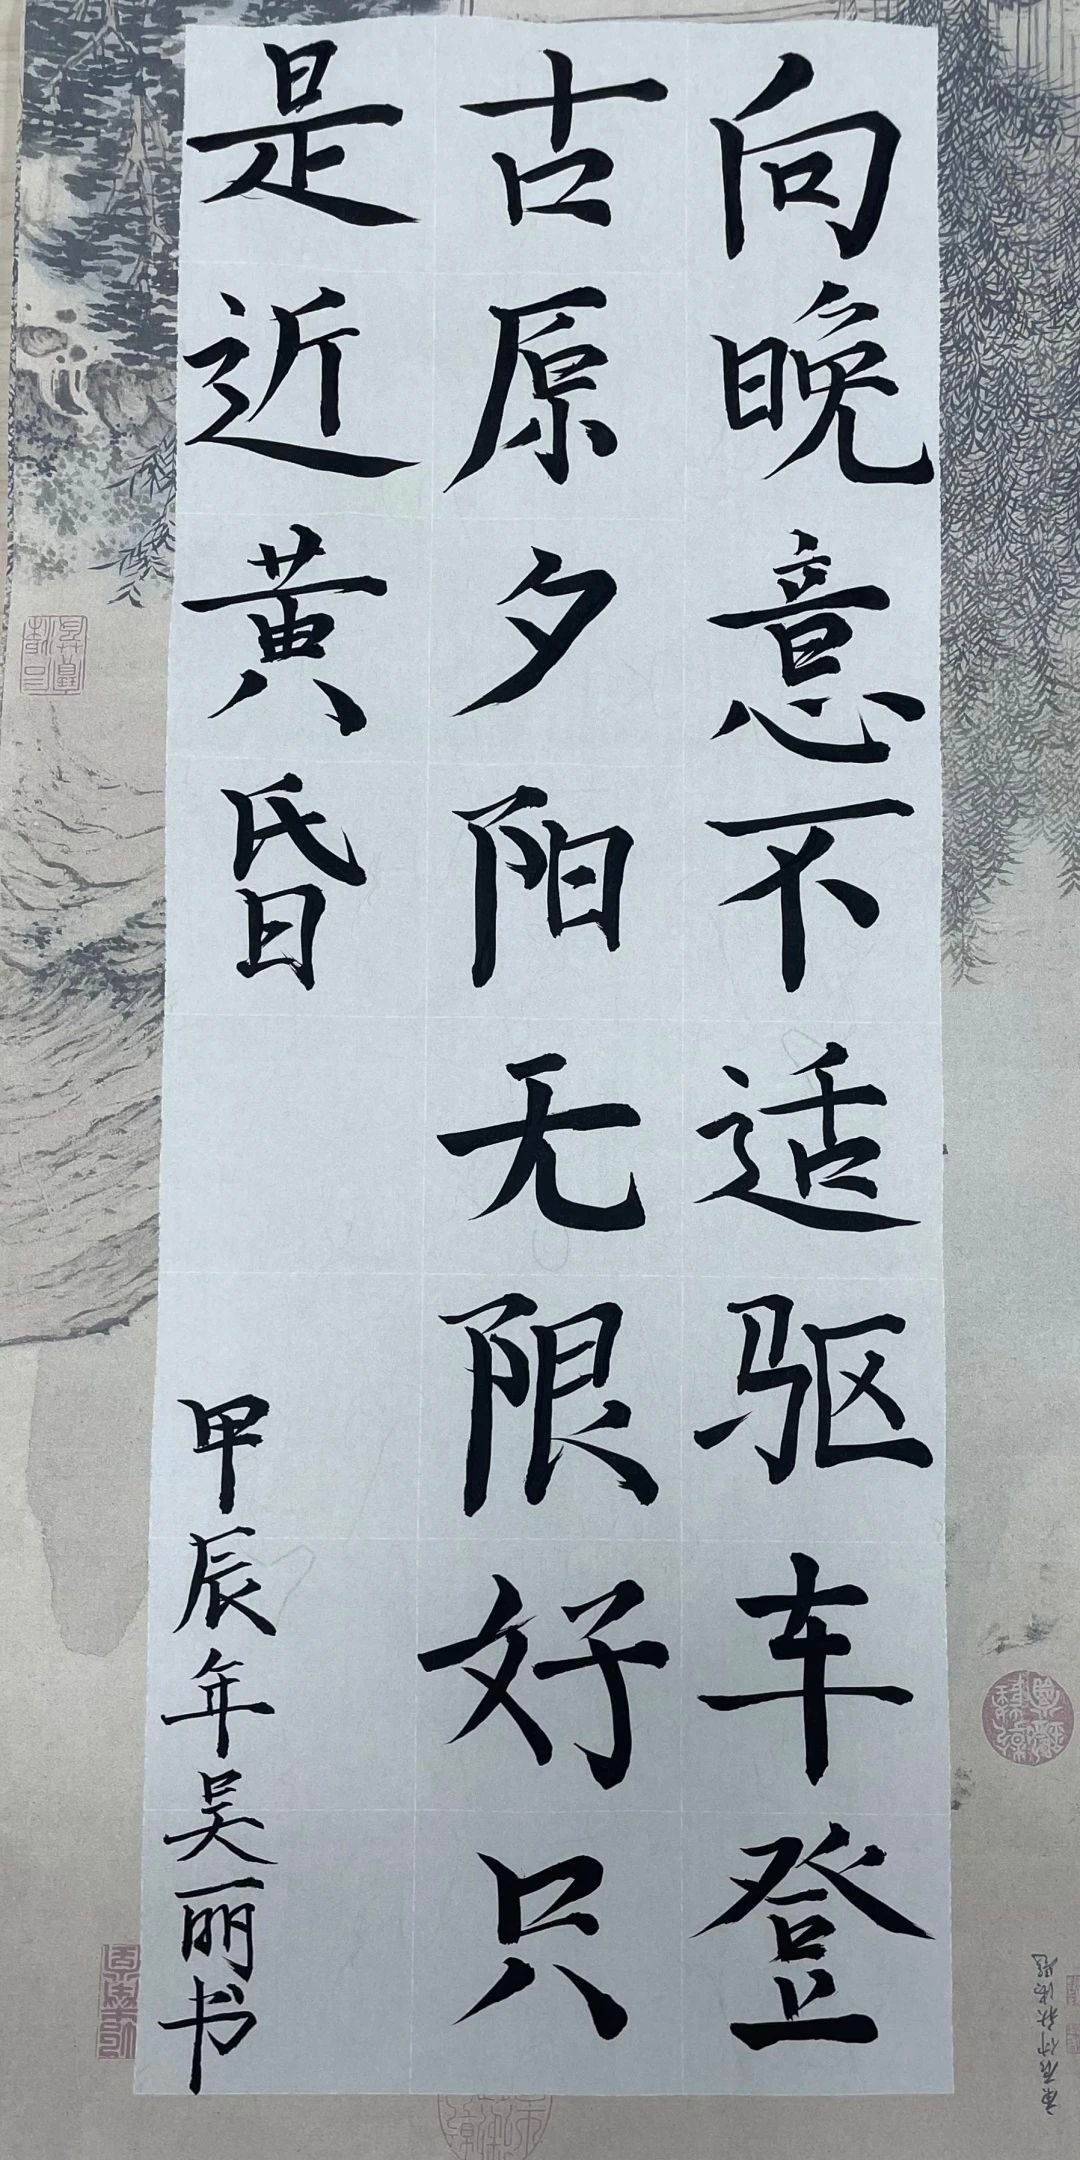 向晚意不适驱车登
古原夕阳无限好只
是近黄昏
甲辰年吴丽书